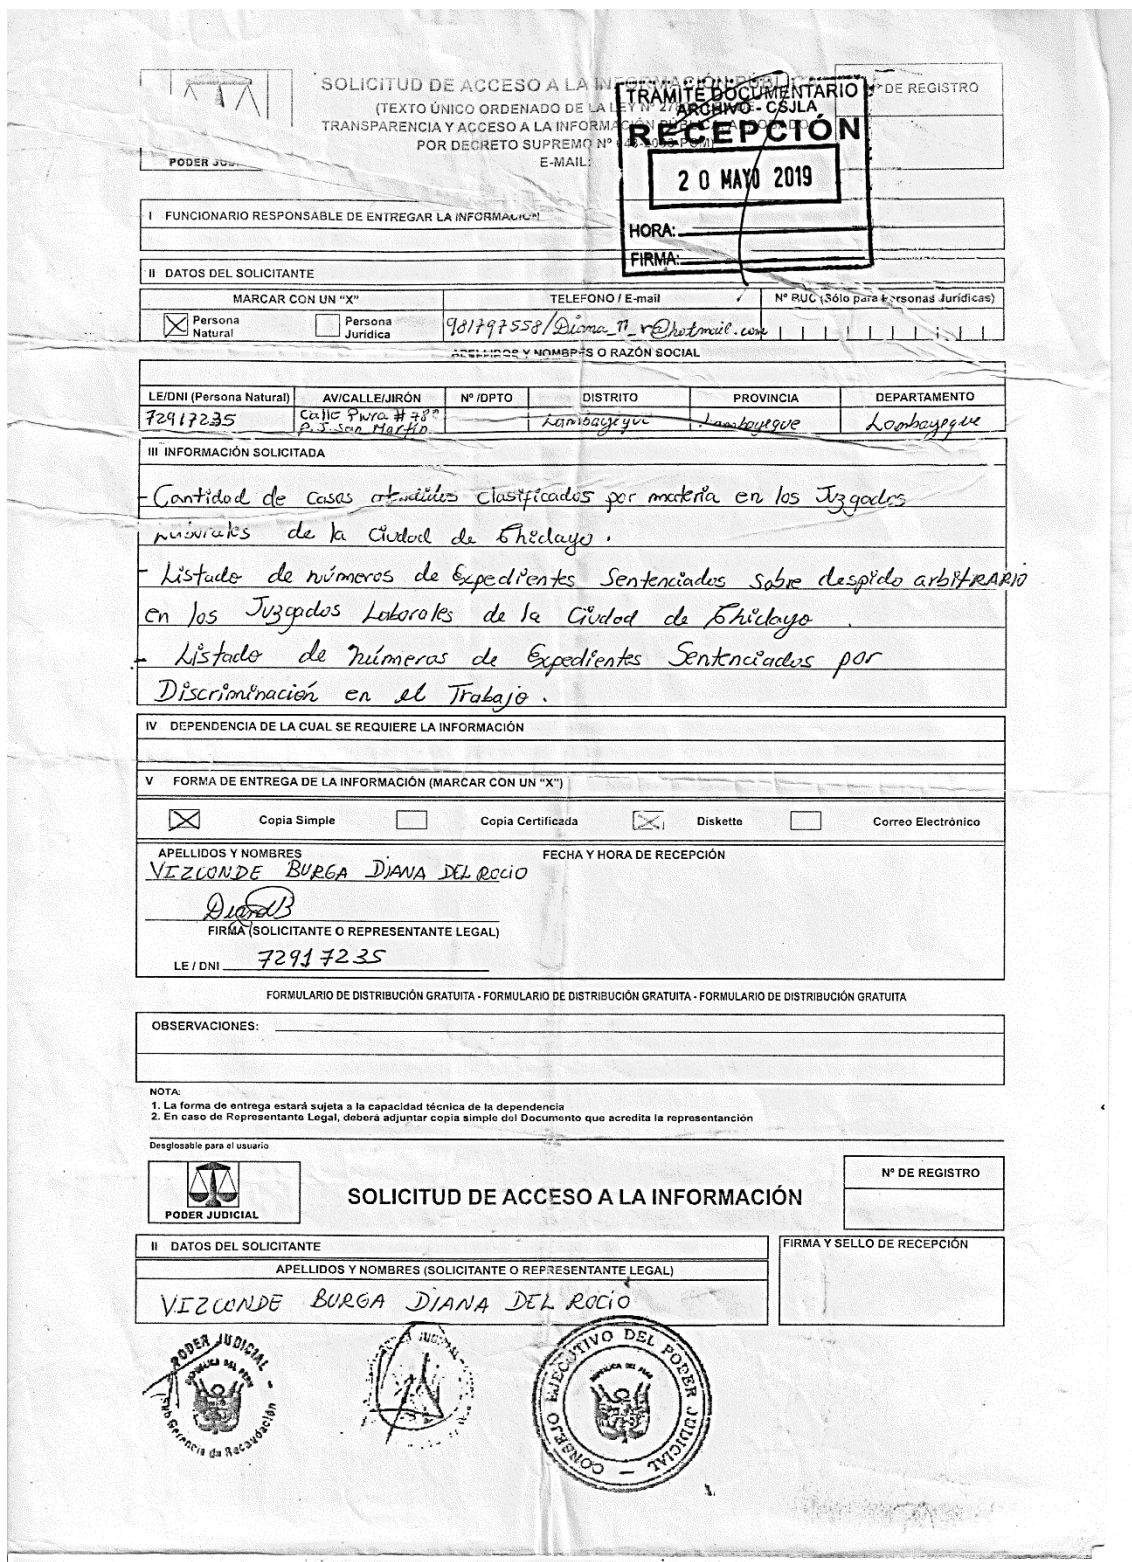 SOLICITUD DE ACCESO A LA INFORMACIÓN PÚBLIC
(TEXTO ÚNICO ORDENADO DE LA LEY Nº
TRANSPARENCIA Y ACCESO A LA INFORMACIÓN
POR DECRETO SUPREMO Nº
E-MAIL:
PODER
Nº DE REGISTRO
TRAMITE DOCUMENTARIO
ARCHIVO - CSJLA
RECEPCIÓN
20 MAYO 2019
HORA:
FIRMA:
I FUNCIONARIO RESPONSABLE DE ENTREGAR LA INFORMACIÓN
II DATOS DEL SOLICITANTE
MARCAR CON UN "X" TELEFONO / E-mail Nº RUC (Sólo para Personas Jurídicas)
Persona Natural Persona Jurídica 981797558/Diana_11_r@hotmail.com
APELLIDOS Y NOMBRES O RAZÓN SOCIAL
LE/DNI (Persona Natural) AV/CALLE/JIRÓN Nº /DPTO DISTRITO PROVINCIA DEPARTAMENTO
72917235 Calle Piura # P.J. San Martín Lambayeque Lambayeque Lambayeque
III INFORMACIÓN SOLICITADA
- Cantidad de casos atendidos clasificados por materia en los Juzgados
de la Ciudad de Chiclayo.
- Listado de números de Expedientes Sentenciados sobre despido arbitRARIO
en los Juzgados Laborales de la Ciudad de Chiclayo.
- Listado de números de Expedientes Sentenciados por
Discriminación en el Trabajo.
IV DEPENDENCIA DE LA CUAL SE REQUIERE LA INFORMACIÓN
V FORMA DE ENTREGA DE LA INFORMACIÓN (MARCAR CON UN "X")
Copia Simple Copia Certificada Diskette Correo Electrónico
APELLIDOS Y NOMBRES FECHA Y HORA DE RECEPCIÓN
VIZCONDE BURGA DIANA DEL ROCIO
DianaB
FIRMA (SOLICITANTE O REPRESENTANTE LEGAL)
LE / DNI 72917235
FORMULARIO DE DISTRIBUCIÓN GRATUITA - FORMULARIO DE DISTRIBUCIÓN GRATUITA - FORMULARIO DE DISTRIBUCIÓN GRATUITA
OBSERVACIONES:
NOTA:
1. La forma de entrega estará sujeta a la capacidad técnica de la dependencia
2. En caso de Representante Legal, deberá adjuntar copia simple del Documento que acredita la representanción
Desglosable para el usuario
PODER JUDICIAL
SOLICITUD DE ACCESO A LA INFORMACIÓN
Nº DE REGISTRO
II DATOS DEL SOLICITANTE
FIRMA Y SELLO DE RECEPCIÓN
APELLIDOS Y NOMBRES (SOLICITANTE O REPRESENTANTE LEGAL)
VIZCONDE BURGA DIANA DEL ROCIO
PODER JUDICIAL
REPÚBLICA DEL PERÚ
Sub Gerencia de Recaudación
JUDICIAL
CONSEJO EJECUTIVO DEL PODER JUDICIAL
REPUBLICA DEL PERU